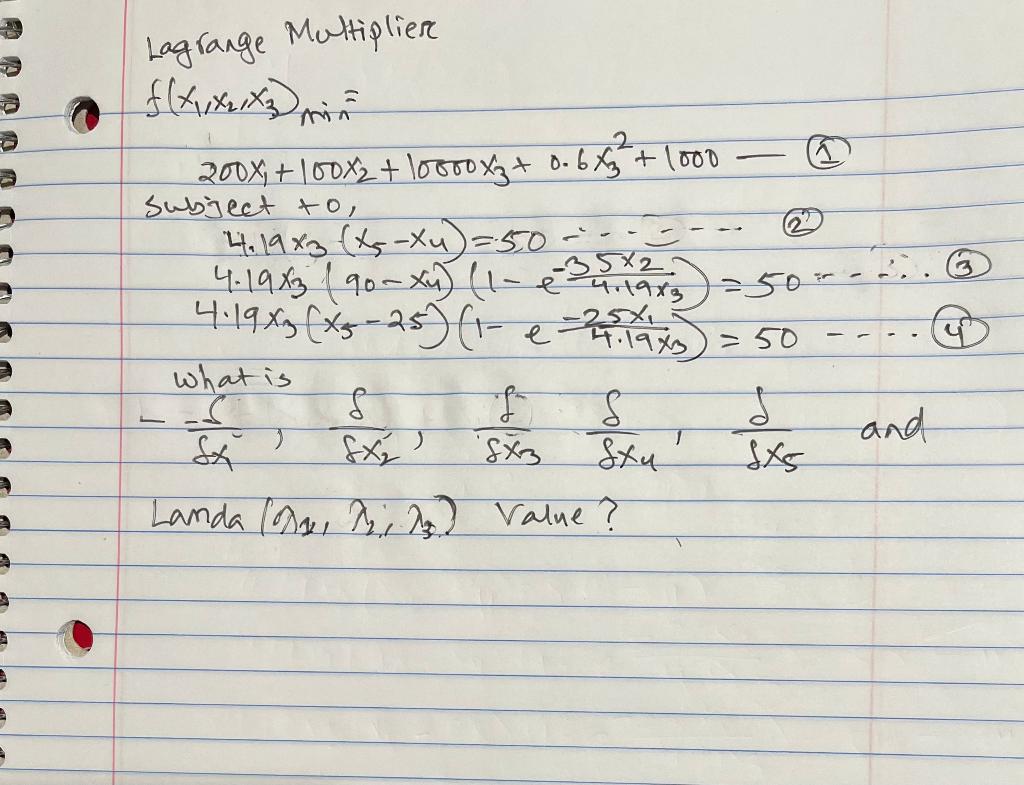 Lagrange Multiplier
f(x₁,x₂,x₃)min =
200x₁ + 100x₂ + 10000x₃ + 0.6x₃² + 1000 — ①
subject to,
4.19x₃ (x₅-x₄) = 50 ------- ②
4.19x₃ (90-x₄) (1- e^(-35x₂/4.19x₃)) = 50 ------ ③
4.19x₃ (x₅-25) (1- e^(-25x₁/4.19x₃)) = 50 ---- ④
what is
- δ/δx₁, δ/δx₂, δ/δx₃ δ/δx₄, δ/δx₅ and
Lamda (λ₁, λ₂, λ₃) Value?